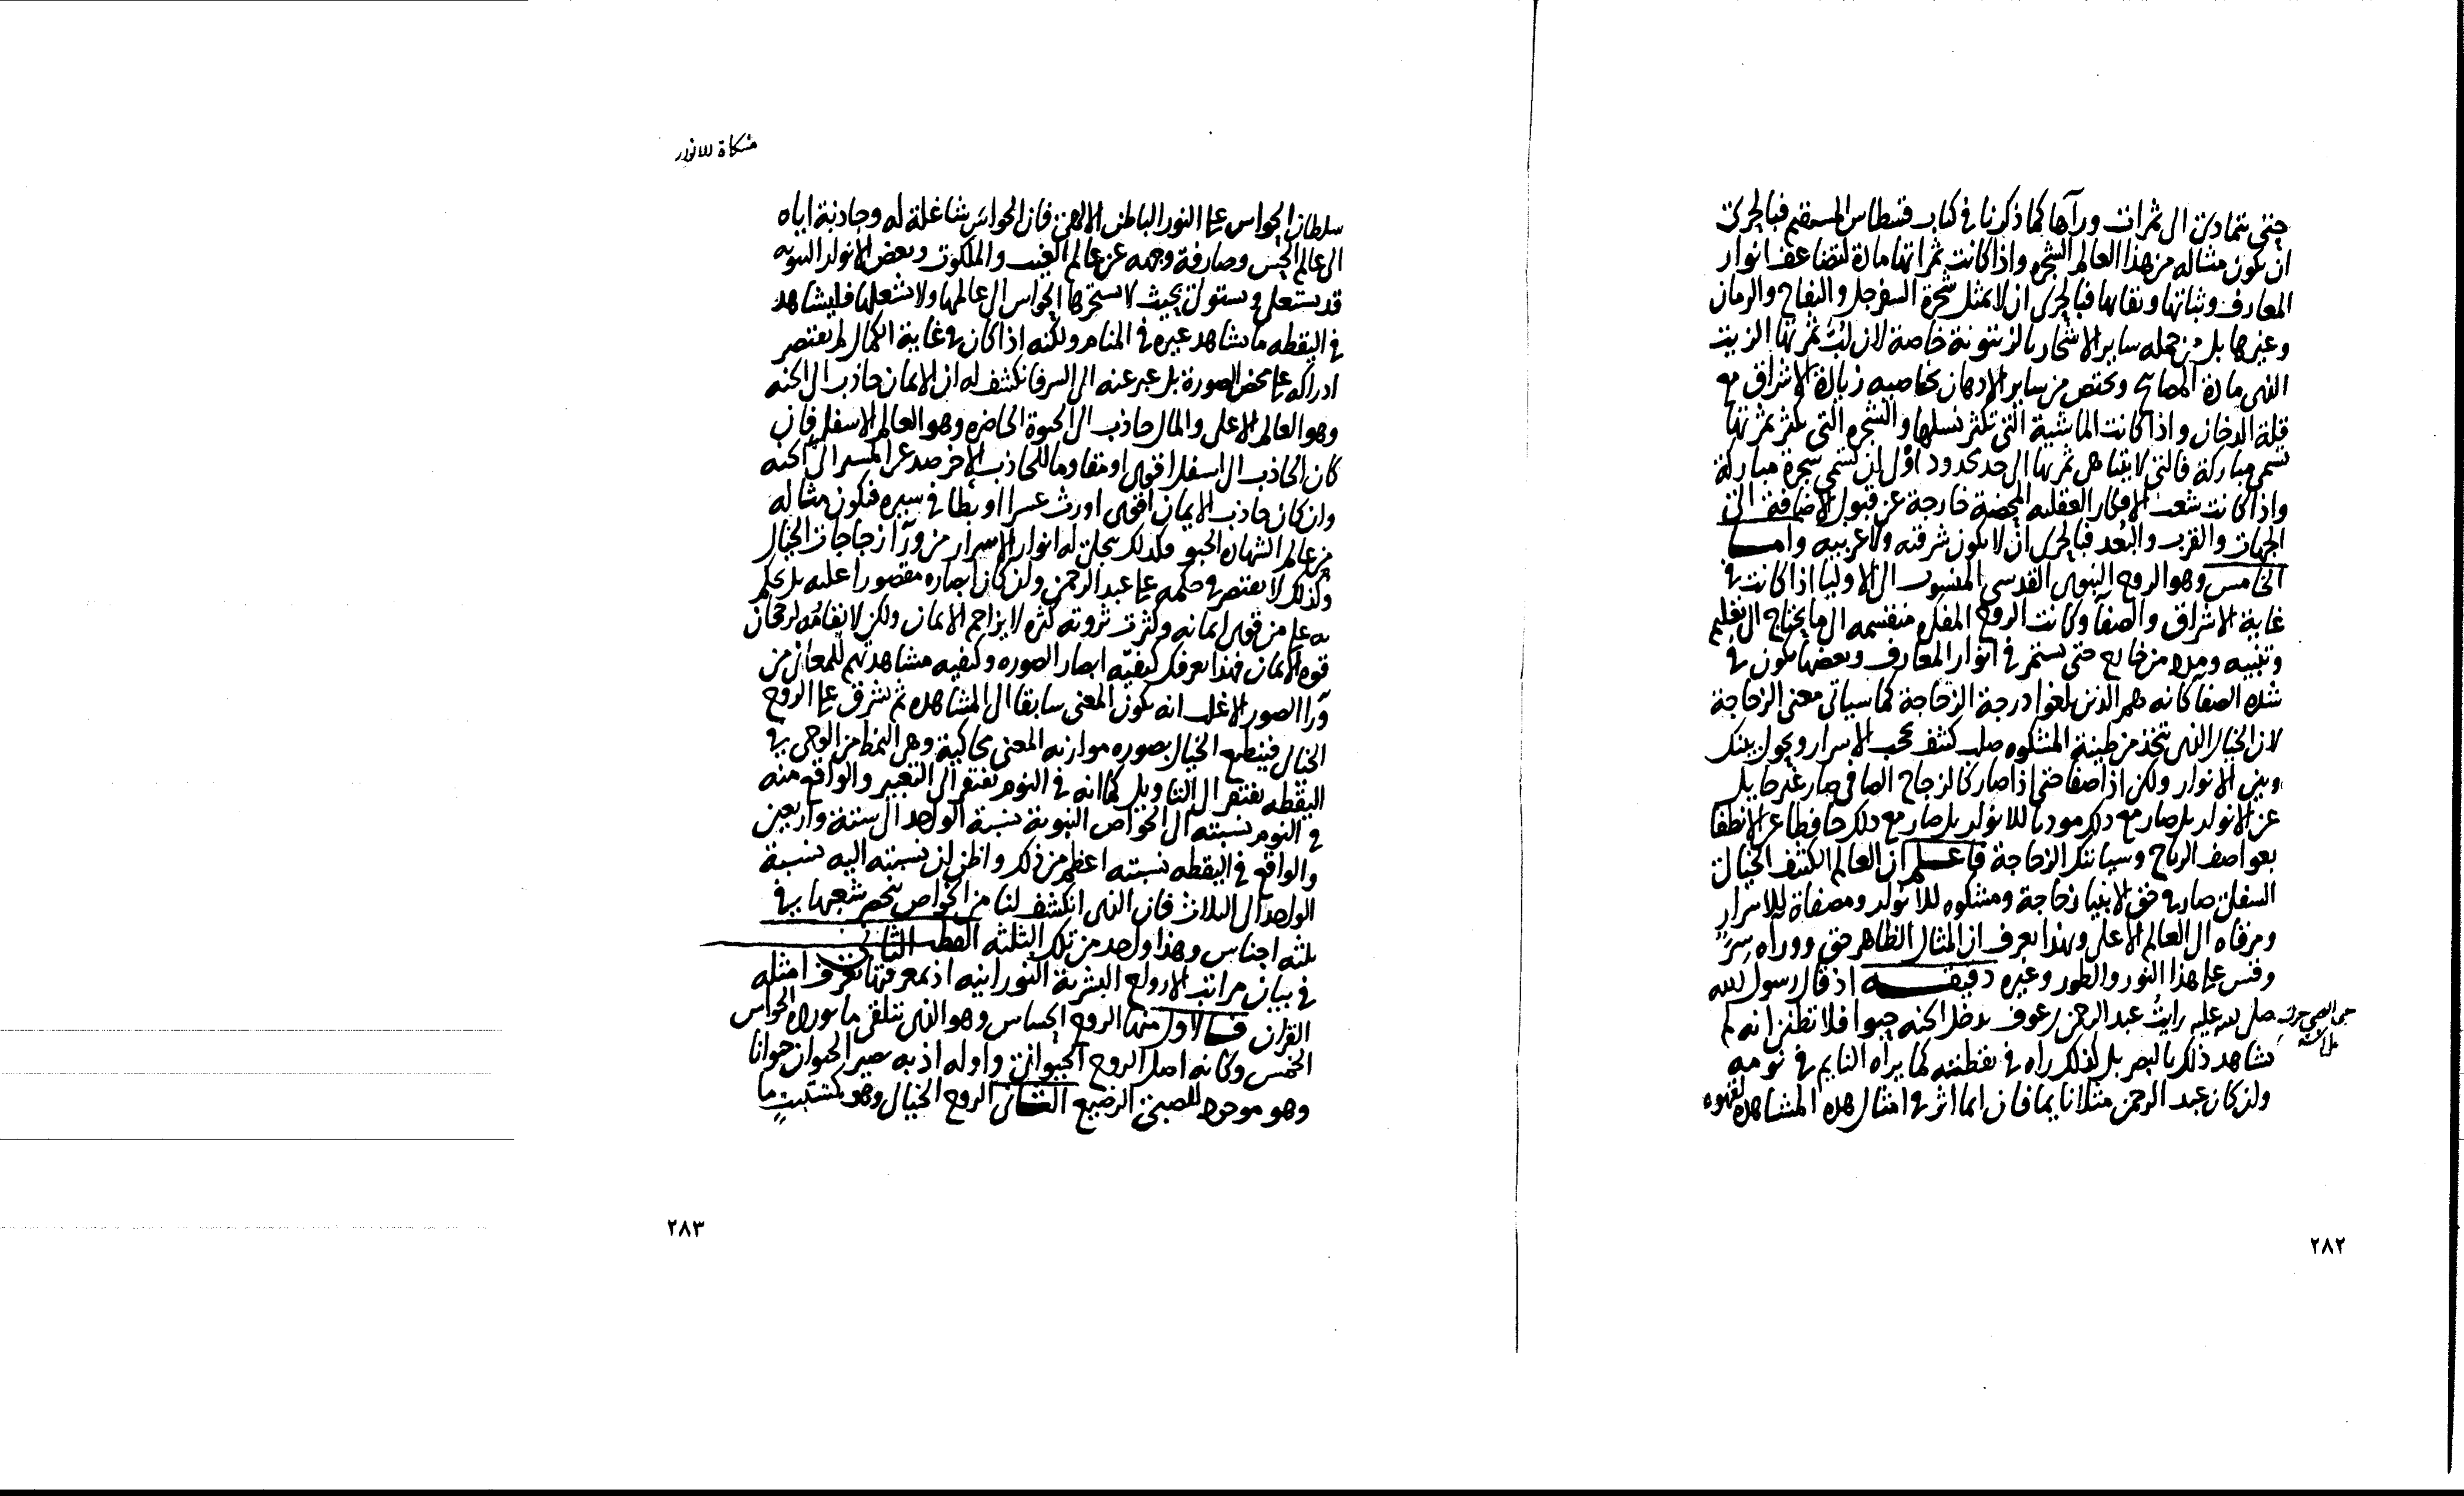 حتى يتمادى الى ثمرات وراها كما ذكرنا في كتاب قسطاس المستقيم فبالحرى
ان يكون مثاله من هذا العالم الشجره واذا كانت ثمراتها مادة لتضاعف انوار
المعارف وثباتها وبقايها فبالحرى ان لا يمثل بشجرة السفرجل والتفاح والرمان
وغيرها بل من جمله ساير الاشجار بالزيتونة خاصة لان لب ثمرتها الزيت
الذى مادة المصابيح ويختص من ساير الادهان بخاصيه زيادة الاشراق مع
قلة الدخان واذا كانت الماشية التي تكثر نسلها والشجره التي تكثر ثمرتها
تسمى مباركة فالتى لا يتناهى ثمرتها الى حد محدود اولى ان تسمى شجرة مباركة
واذا كانت شعب الافكار العقليه المحضة خارجة عن قبول الاضافة الى
الجهات والقرب والبعد فبالحرى ان لا يكون شرقيه ولا غربيه واما
الخامس وهو الروح النبوى القدسى المنسوب الى الاوليا اذا كانت في
غاية الاشراق والصفا وكانت الروح المفكره منقسمه الى ما يحتاج الى تعليم
وتنبيه ومدد من خارج حتى يستمر في انوار المعارف وبعضها يكون في
شده الصفا كانه هم الذين بلغوا درجة الزجاجة كما سياتى معنى الزجاجة
لان الخيال الذى يتخذ من طينة المشكوه صلب كثيف يحجب الاسرار ويحول بينك
وبين الانوار ولكن اذا صفا حتى اذا صار كالزجاج الصافى صار غير حايل
عن الانوار بل صار مع ذلك موديا للانوار بل صار مع ذلك حافظا عن الانطفا
بعواصف الرياح وسياتيك الزجاجة فاعلم ان العالم الكثيف الخيالى
السفلى صار في حق الانبيا زجاجة ومشكوه للانوار ومصفاة للاسرار
ومرقاه الى العالم الاعلى وبهذا يعرف ان المثال الظاهر حق ووراه سر
وقس على هذا النور والطور وغيره دقيقه اذ قال رسول الله
صلى الله عليه رايت عبد الرحمن بن عوف يدخل الجنه حبوا فلا تظنن انه لم
يشاهد ذلك بالبصر بل كذلك راه في يقظته كما يراه النايم في نومه
وان كان عبد الرحمن مثلا نايما فان انما اثر في امثال هذه المشاهده لقهره
٢٨٢
مشكاة الانوار
سلطان الحواس على النور الباطن الالهى فان الحواس شاغلة له وجاذبة اياه
الى عالم الحس وصارفة وجهه عن عالم الغيب والملكوت وبعض الانوار النبويه
قد يستعلى ويستولى بحيث لا تستجرها الحواس الى عالمها ولا تشغلها فيشاهد
في اليقظه ما يشاهد غيره في المنام ولكنه اذا كان في غاية الكمال لم يقتصر
ادراكه على محض الصورة بل عبر عنه الى السر فانكشف له ان الايمان جاذب الى الجنه
وهو العالم الاعلى والمال جاذب الى الحيوة الحاضره وهو العالم الاسفل فان
كان الجاذب الى اسفل اقوى او مقاوما للجاذب الاخر صد عن المسير الى الجنه
وان كان جاذب الايمان اقوى اورث عسرا او بطا في سيره فيكون مثاله
من عالم الشهاده الحبو وكذلك تجلى له انوار الاسرار من ورا زجاجات الخيال
ولذلك لا يقتصر في حكمه على عبد الرحمن وان كان ابصاره مقصورا عليه بل يحكم
به على من قوى ايمانه وكثرت ثروته كثره لا يزاحم الايمان ولكن لا يقاومه لرجحان
قوه الايمان فهذا يعرفك كيفية ابصار الصوره وكيفيه مشاهدتهم للمعانى من
ورا الصور الاغلب انه يكون المعنى سابقا الى المشاهده ثم يشرق على الروح
الخيالى فينطبع الخيال بصوره موازنه المعنى محاكية وهى النمط من الوحى في
اليقظه يفتقر الى التاويل كما انه في النوم يفتقر الى التعبير والواقع منه
في النوم نسبته الى الخواص النبوية نسبة الواحد الى ستة واربعين
والواقع في اليقظه نسبته اعظم من ذلك واظن ان نسبته اليه نسبة
الواحد الى الثلاث فان الذى انكشف لنا من الخواص ينحصر شعبها في
ثلثه اجناس وهذا واحد من تلك الثلثه القطب الثانى
في بيان مراتب الارواح البشرية النورانيه اذ بمعرفتها تعرف امثله
القران فالاول منها الروح الحساس وهو الذى يتلقى ما تورده الحواس
الخمس وكانه اصل الروح الحيوانى واوله اذ به يصير الحيوان حيوانا
وهو موجود للصبى الرضيع الثانى الروح الخيالى وهو يستثبت ما
٢٨٣